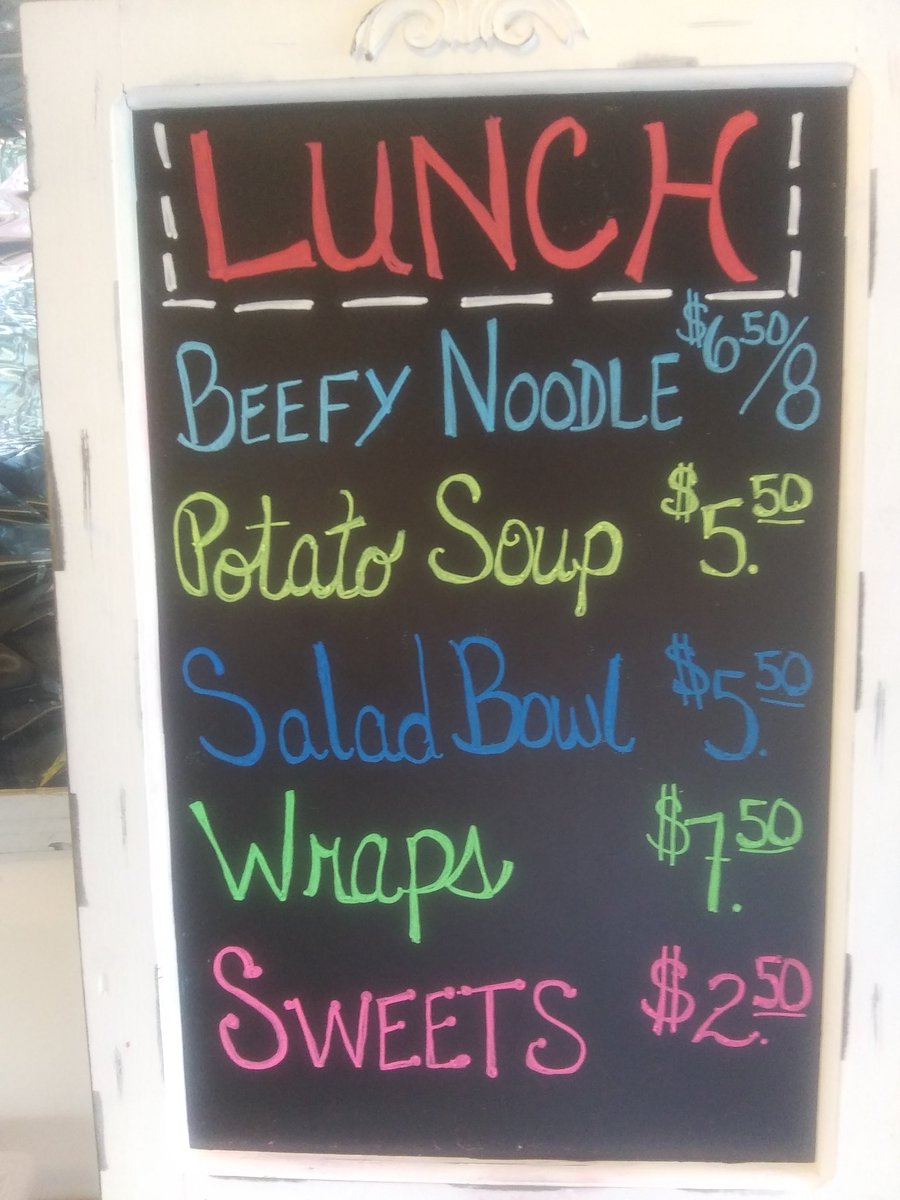 LUNCH
BEEFY NOODLE $6 50/8
Potato Soup $5.50
Salad Bowl $5.50
Wraps $7.50
SWEETS $2.50